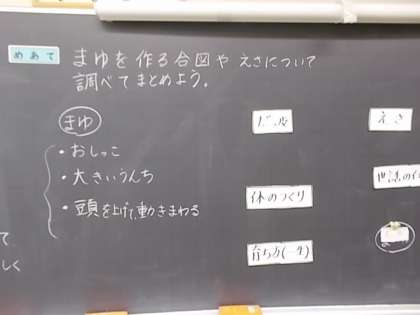 めあて
まゆを作る合図や えさについて
調べてまとめよう。
まゆ
・おしっこ
・大きいうんち
・頭を上げて、動きまわる
て
しく
えさ
体のつくり
世話の仕
育ち方(一生)